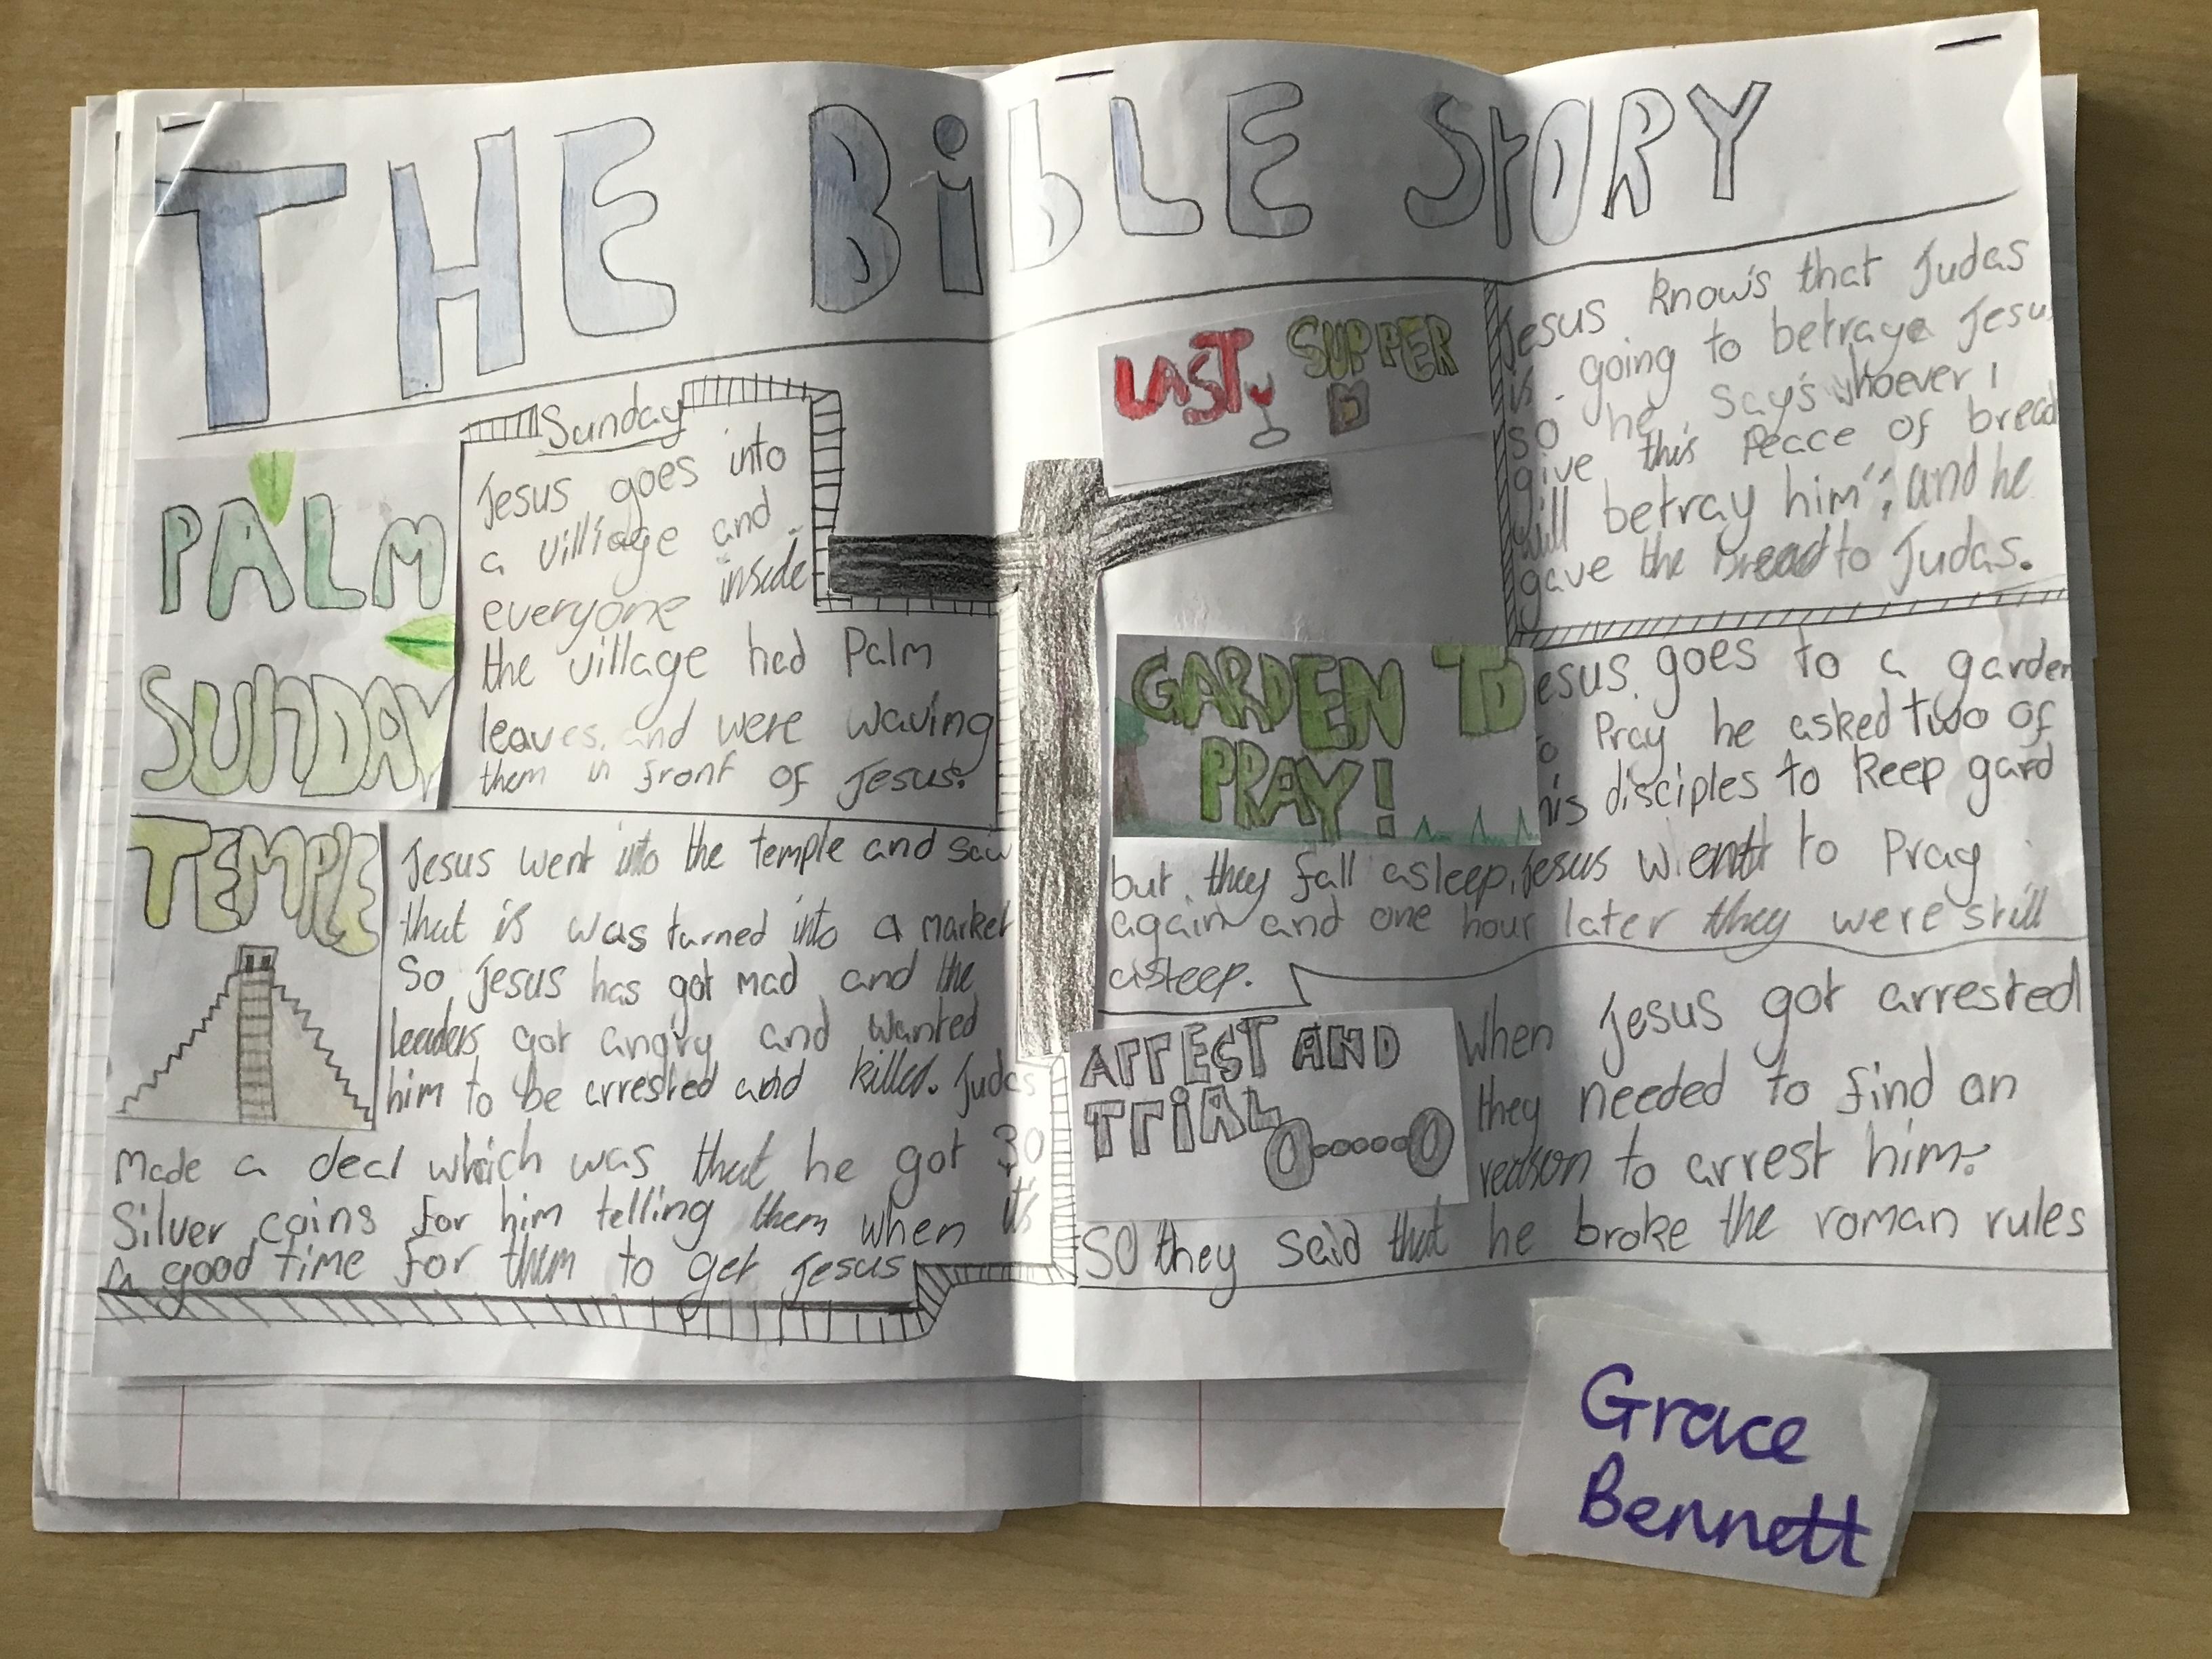 THE BiBLE StORY
PALM
SUNDAY
Sunday
Jesus goes into
a villiage and
everyone inside
the village had Palm
leaves, and were waving
them in front of Jesus.
TEMPLE
Jesus went into the temple and saw
that is was turned into a market
So Jesus has got mad and the
leaders got angry and wanted
him to be arrested and killed. Judas
Made a deal which was that he got 30
Silver coins for him telling them when it's
A good time for them to get Jesus
LAST SUPPER
Jesus know's that Judas
is going to betraye Jesus
so he say's whoever I
give this Peace of bread
will betray him", and he
gave the bread to Judas.
GARDEN TO
PRAY!
esus goes to a garden
o Pray he asked two of
his disciples to keep gard
but they fall asleep, Jesus went to Pray
again and one hour later they were still
asleep.
ArrEST AND
TriAL
When Jesus got arrested
they needed to find an
reason to arrest him.
SO they said that he broke the roman rules
Grace
Bennett